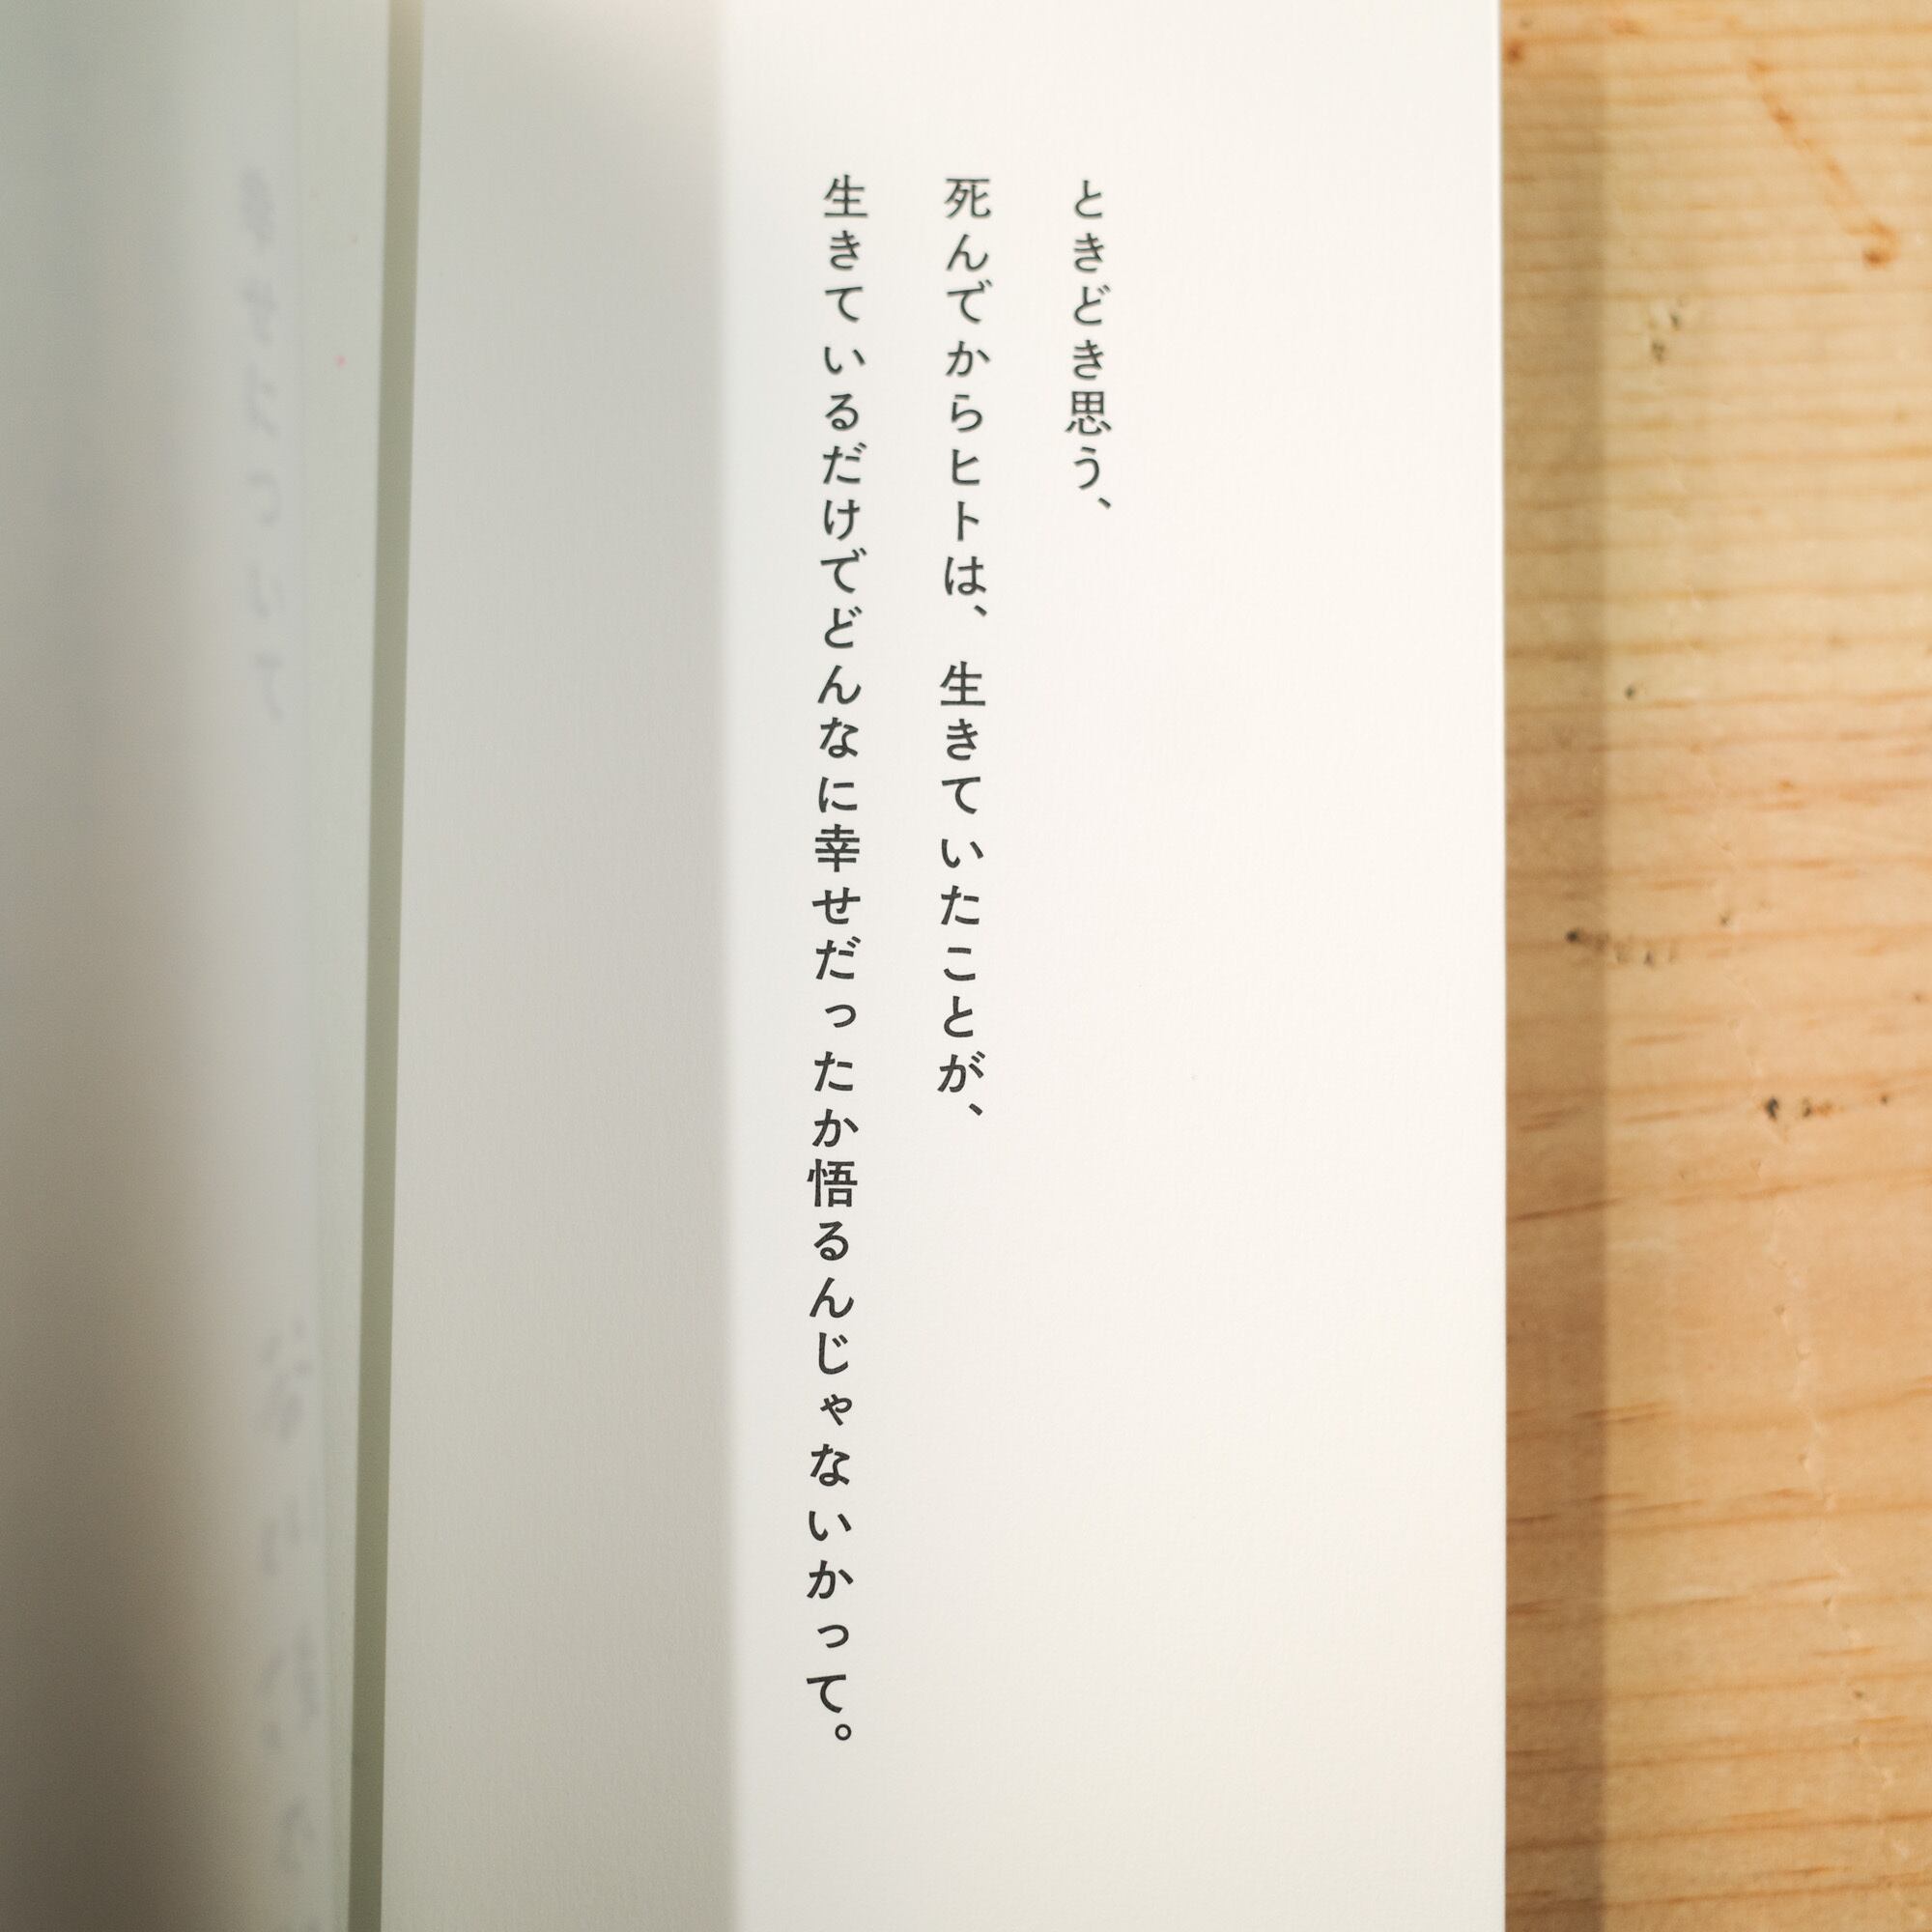 ときどき思う、
死んでからヒトは、生きていたことが、
生きているだけでどんなに幸せだったか悟るんじゃないかって。